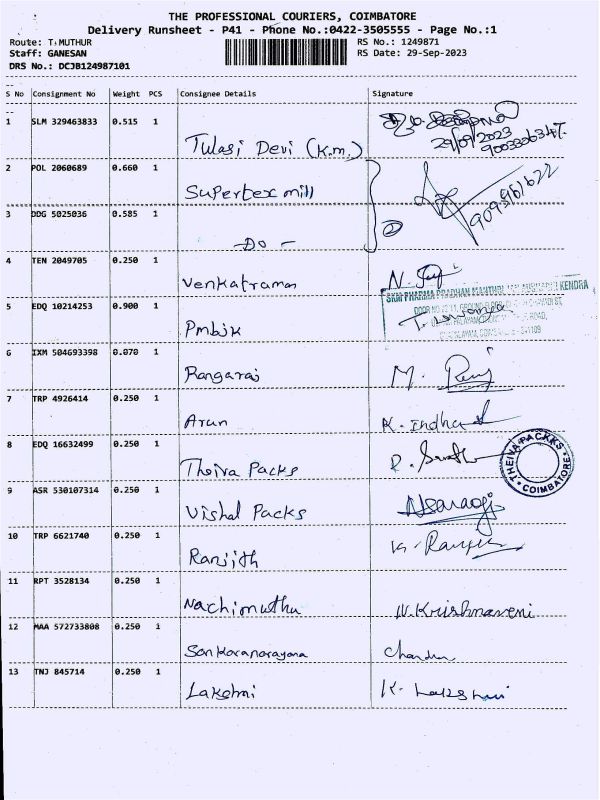 THE PROFESSIONAL COURIERS, COIMBATORE
Delivery Runsheet - P41 - Phone No.:0422-3505555 - Page No.:1
Route: T.MUTHUR RS No.: 1249871
Staff: GANESAN RS Date: 29-Sep-2023
DRS No.: DCJB124987101
S No Consignment No Weight PCS Consignee Details Signature
1 SLM 329463833 0.515 1
Tulasi Devi (K.m.) 29/09/2023
2 POL 2060689 0.660 1
Supertex mill
3 DDG 5025036 0.585 1
- Do - 2
4 TEN 2049705 0.250 1
Venkatraman N.
5 EDQ 10214253 0.900 1
Pmbjk
SKM PHARMA PRADHAN MANTHRI KENDRA
6 IXM 504693398 0.070 1
Rangaraj M. Raj
7 TRP 4926414 0.250 1
Arun K. Indhu
8 EDQ 16632499 0.250 1
Theiva Packs R.
THEIVA PACKKS COIMBATORE
9 ASR 530107314 0.250 1
Vishal Packs
10 TRP 6621740 0.250 1
Ranjith
11 RPT 3528134 0.250 1
Nachimuthu N. Krishnaveni
12 MAA 572733808 0.250 1
Sankaranarayana
13 TNJ 845714 0.250 1
Lakshmi K. Lakshmi